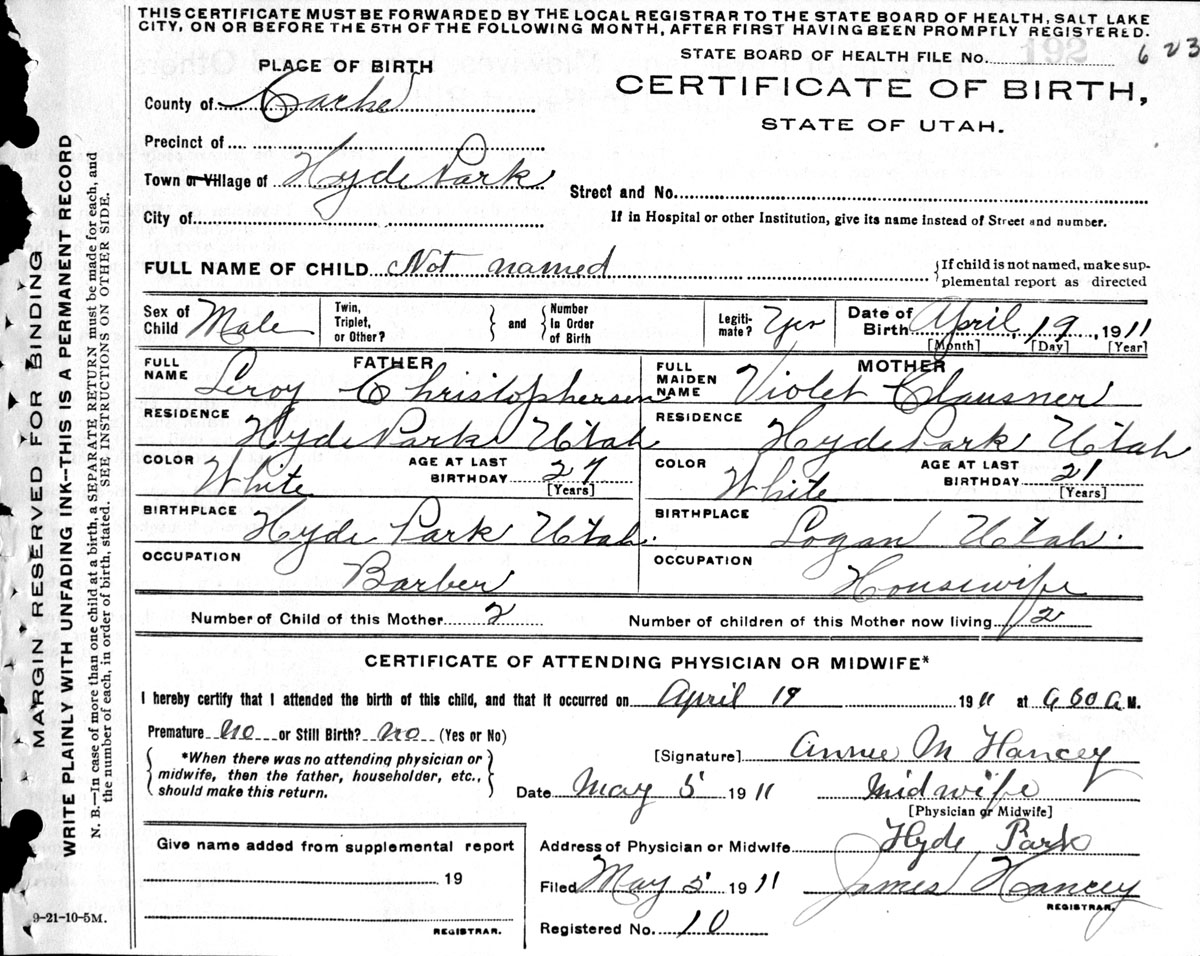 THIS CERTIFICATE MUST BE FORWARDED BY THE LOCAL REGISTRAR TO THE STATE BOARD OF HEALTH, SALT LAKE
CITY, ON OR BEFORE THE 5TH OF THE FOLLOWING MONTH, AFTER FIRST HAVING BEEN PROMPTLY REGISTERED.
STATE BOARD OF HEALTH FILE No. 192 623
PLACE OF BIRTH
CERTIFICATE OF BIRTH,
STATE OF UTAH.
County of Cache
Precinct of
Town or Village of Hyde Park
Street and No.
City of
If in Hospital or other Institution, give its name instead of Street and number.
FULL NAME OF CHILD Not named {If child is not named, make sup-
plemental report as directed
Sex of Child Male
Twin, Triplet, or Other? } and { Number In Order of Birth
Legiti-mate? Yes
Date of Birth April, 19, 1911
[Month] [Day] [Year]
FATHER
FULL NAME Leroy Christophersen
MOTHER
FULL MAIDEN NAME Violet Clausner
RESIDENCE Hyde Park Utah
RESIDENCE Hyde Park Utah
COLOR White AGE AT LAST BIRTHDAY 27 [Years]
COLOR White AGE AT LAST BIRTHDAY 21 [Years]
BIRTHPLACE Hyde Park Utah.
BIRTHPLACE Logan Utah.
OCCUPATION Barber
OCCUPATION Housewife
Number of Child of this Mother 2 Number of children of this Mother now living 2
CERTIFICATE OF ATTENDING PHYSICIAN OR MIDWIFE*
I hereby certify that I attended the birth of this child, and that it occurred on April 19 1911 at 6 00 A M.
Premature No or Still Birth? No (Yes or No)
*When there was no attending physician or
midwife, then the father, householder, etc.,
should make this return.
[Signature] Annie M Hancey
Date May 5 1911 Midwife
[Physician or Midwife]
Give name added from supplemental report
19
REGISTRAR.
Address of Physician or Midwife Hyde Park
Filed May 5 1911 James Hancey
REGISTRAR.
Registered No. 10
9-21-10-5M.
MARGIN RESERVED FOR BINDING
WRITE PLAINLY WITH UNFADING INK—THIS IS A PERMANENT RECORD
N. B.—In case of more than one child at a birth, a SEPARATE RETURN must be made for each, and
the number of each, in order of birth, stated. SEE INSTRUCTIONS ON OTHER SIDE.